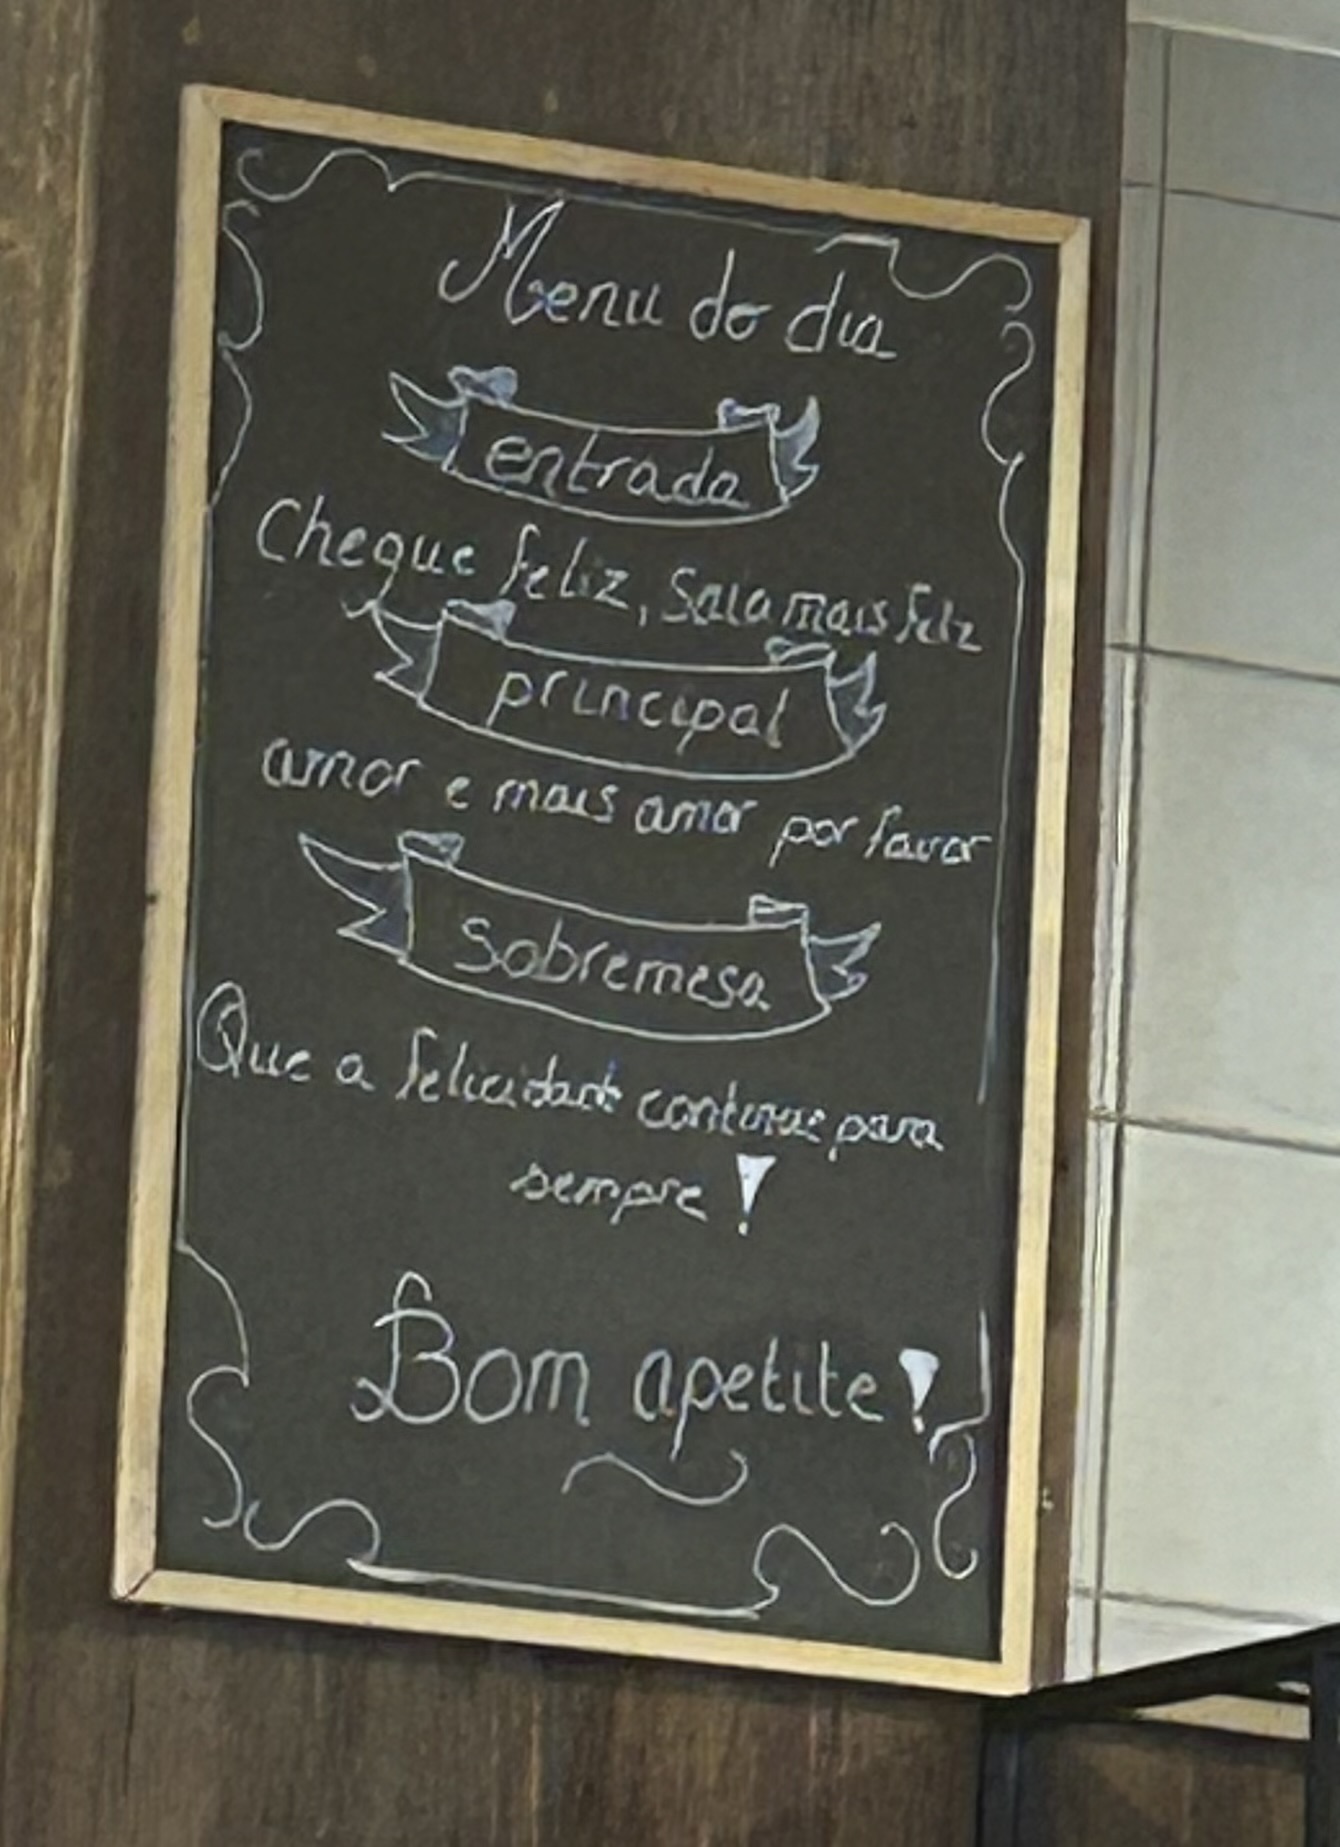 Menu do dia
entrada
Chegue feliz, Saia mais feliz
principal
amor e mais amor por favor
Sobremesa
Que a felicidade continue para
sempre!
Bom apetite!